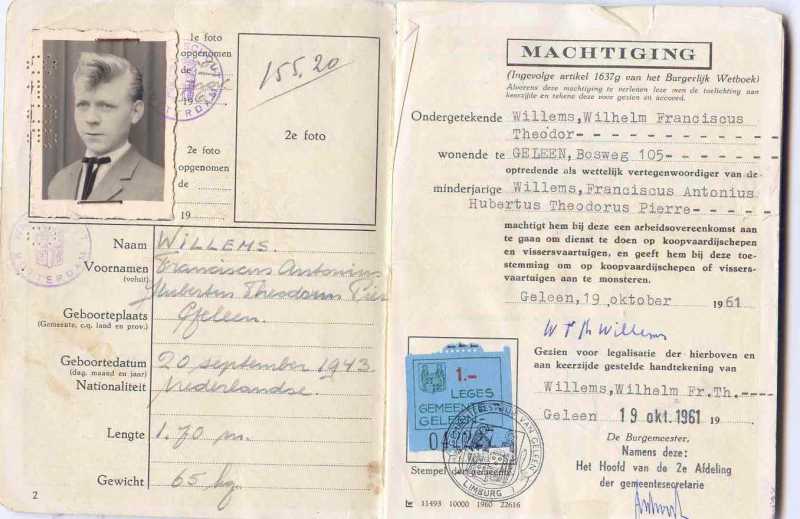 1e foto
opgenomen
de
19
ROTTERDAM
155.20
2e foto
2e foto
opgenomen
de
19
Naam WILLEMS.
Voornamen Franciscus Antonius
(voluit) Hubertus Theodorus Pier
Geboorteplaats Geleen.
(Gemeente, c.q. land en prov.)
Geboortedatum 20 september 1943.
(dag, maand en jaar)
Nationaliteit Nederlandse.
Lengte 1.70 m.
Gewicht 65 kg.
2
MACHTIGING
(Ingevolge artikel 1637g van het Burgerlijk Wetboek)
Alvorens deze machtiging te verlenen leze men de toelichting aan
keerzijde en tekene deze voor gezien en accoord.
Ondergetekende Willems,Wilhelm Franciscus
Theodor- - - - - - - - - - -
wonende te GELEEN,Bosweg 105- - - - - -
optredende als wettelijk vertegenwoordiger van de
minderjarige Willems,Franciscus Antonius
Hubertus Theodorus Pierre- - - - -
machtigt hem bij deze een arbeidsovereenkomst aan
te gaan om dienst te doen op koopvaardijschepen
en vissersvaartuigen, en geeft hem bij deze toe-
stemming om op koopvaardijschepen of vissers-
vaartuigen aan te monsteren.
Geleen,19 oktober 1961
Willems
Gezien voor legalisatie der hierboven en
aan keerzijde gestelde handtekening van
Willems,Wilhelm Fr.Th.- - - -
Geleen 19 okt.1961 19
De Burgemeester,
Namens deze:
Het Hoofd van de 2e Afdeling
der gemeentesecretarie
1.-
LEGES
GEMEENTE
GELEEN
GEMEENTEBESTUUR VAN GELEEN
LIMBURG
Stempel der gemeente
11493 10000 1960 22616